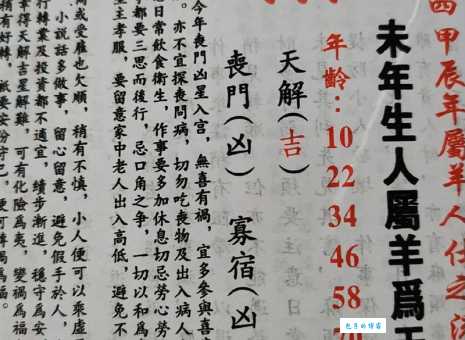 甲辰年屬羊人仕之
未年生人屬羊爲
年齡：10 22 34 46 58
天解（吉）
喪門（凶） 寡宿（凶
今年喪門凶星入宮，無喜有禍，宜多參與喜
。亦不宜探喪問病，切勿吃喪物及出入病人
日常飲食衛生，作事要多加休息切忌勞心勞
都要三思而後行，忌口角之爭，一切以和為
主孝服，要留意家中老人出入高低，避免不
或受雇也欠順，稍有不慎，小人便可以乘虛
小說話多做事，留心留意，避免假手於人，
行轉業及投資都不適宜，績步漸進，穩守為安
得天解吉星解難，可有化險為夷，變禍為福
有好轉，祇要安份守己，便可轉禍為福。